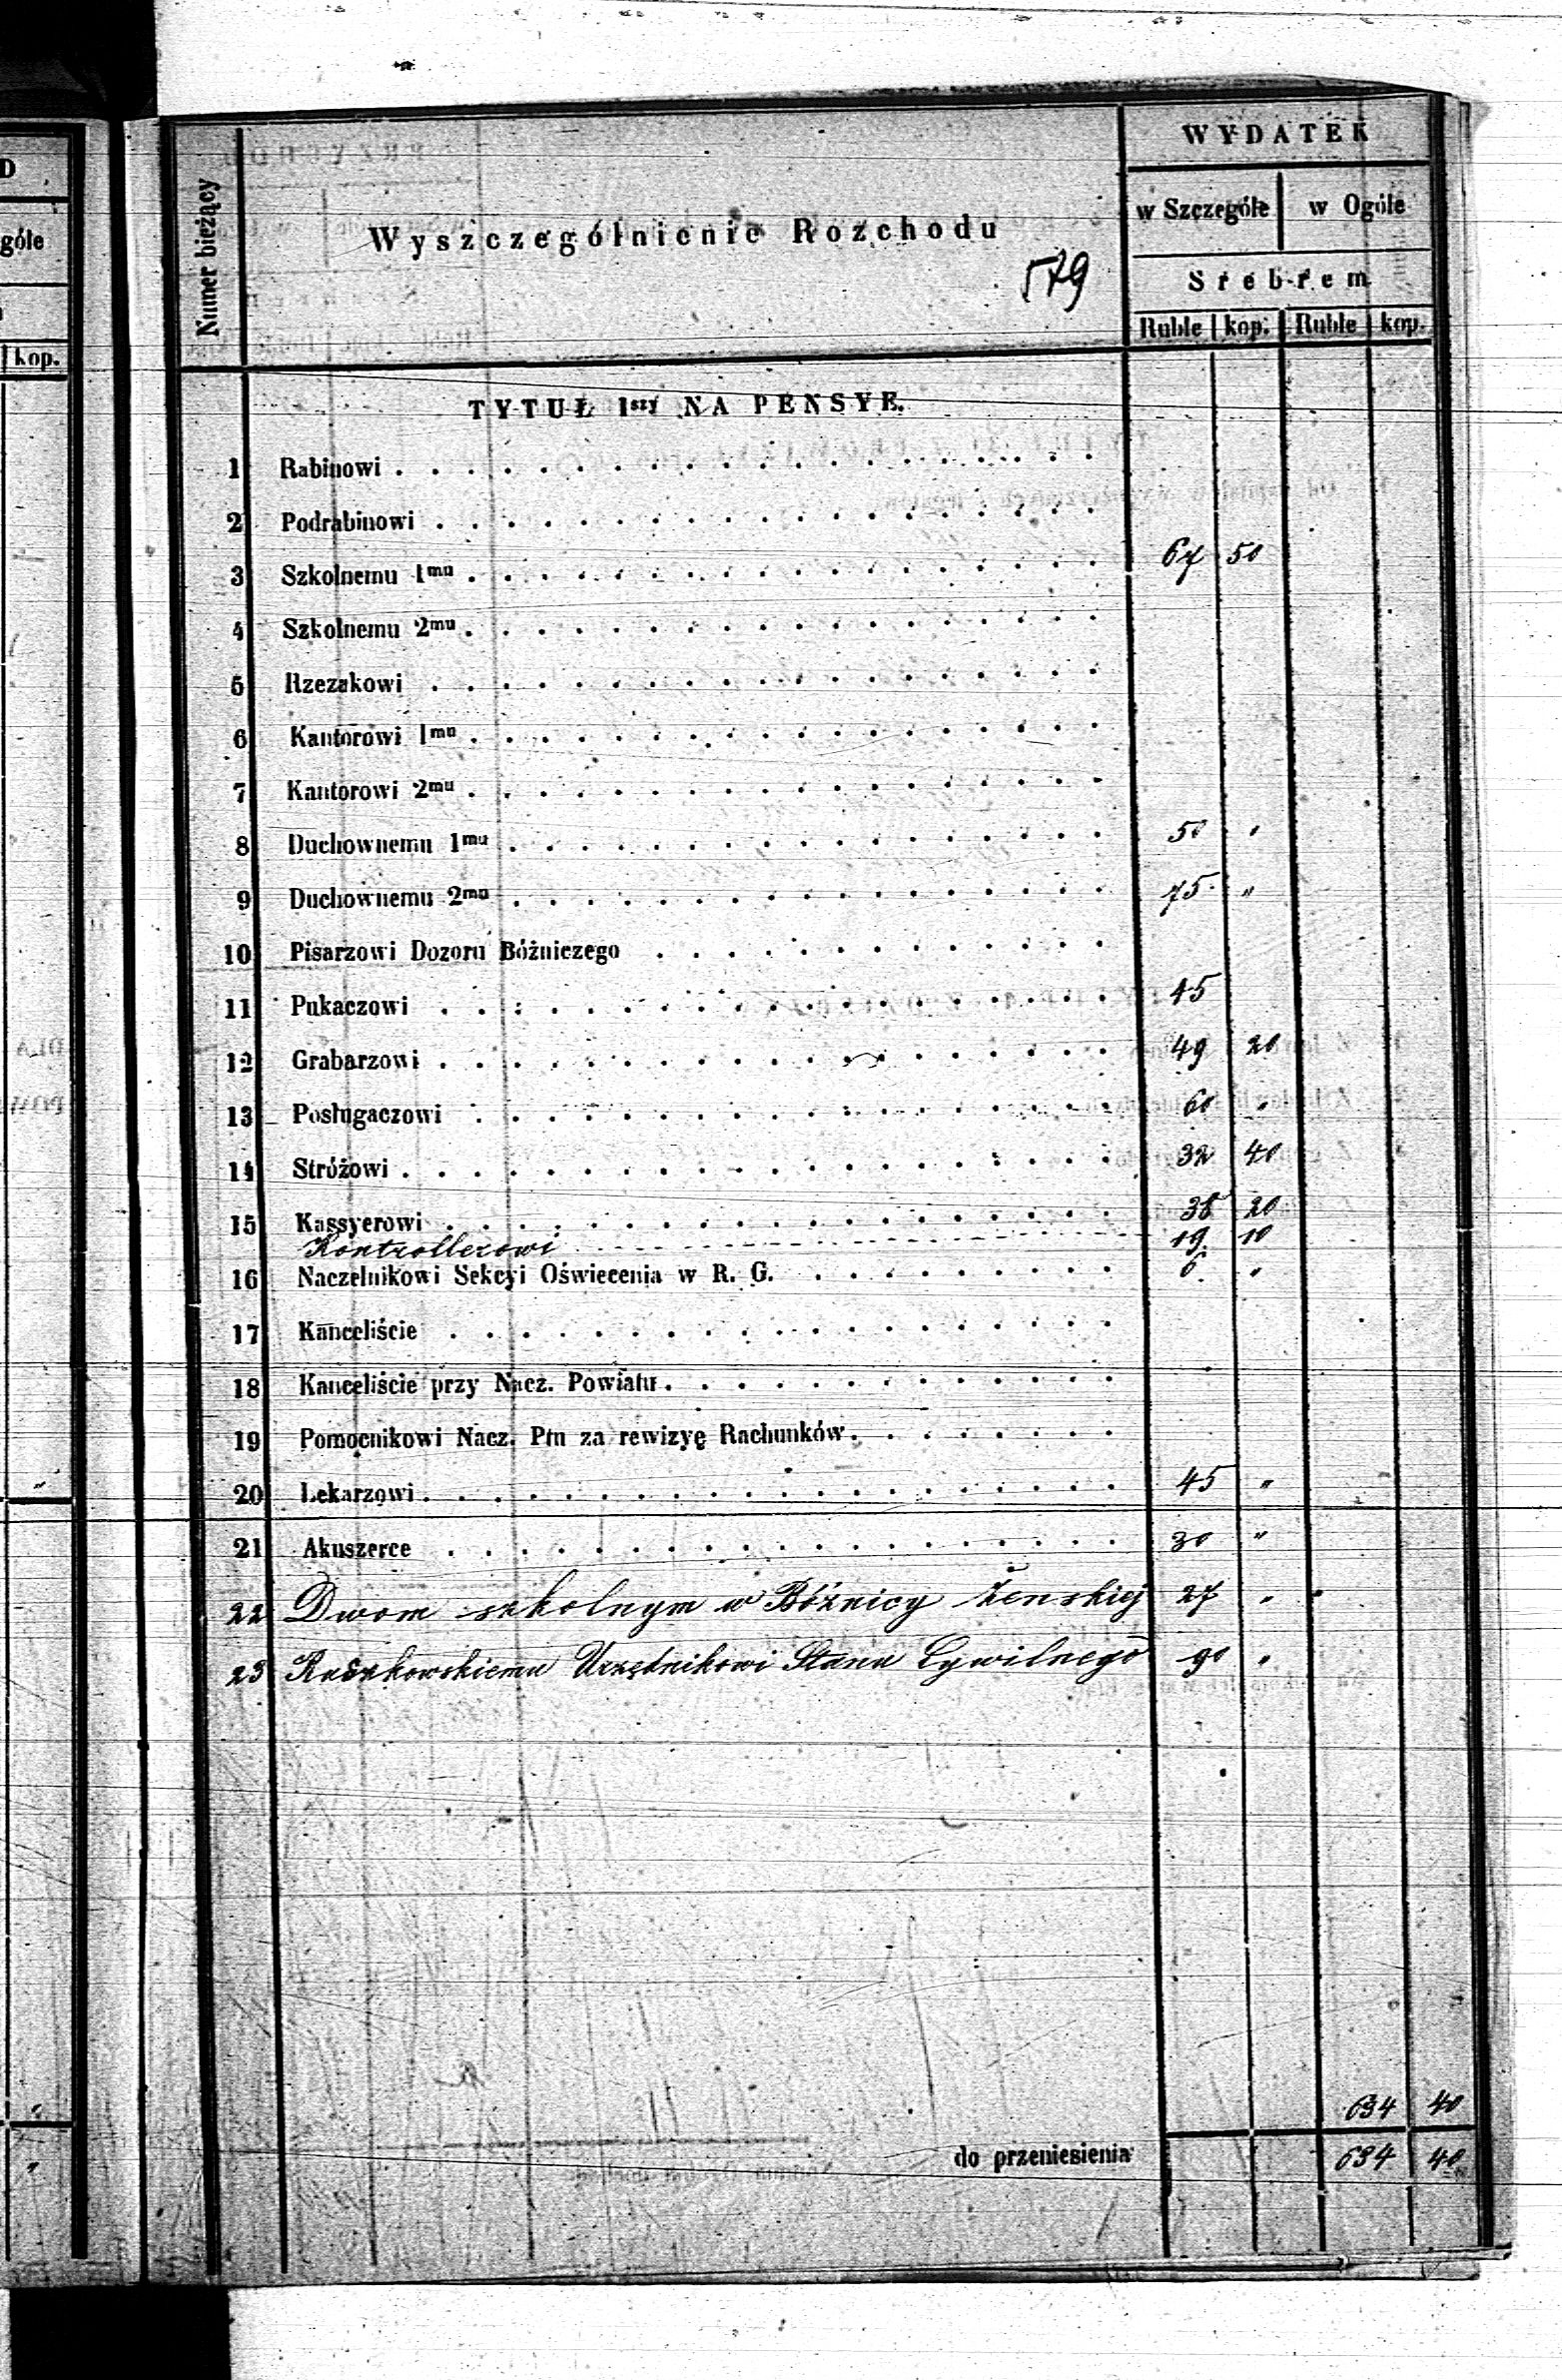 D
góle
kop.
Numer bieżący
Wyszczególnienie Rozchodu
579
WYDATEK
w Szczególe w Ogóle
Srebrem
Ruble kop. Ruble kop.
TYTUŁ 1szy NA PENSYE.
1 Rabinowi
2 Podrabinowi
3 Szkolnemu 1mu 67 50
4 Szkolnemu 2mu
5 Rzezakowi
6 Kantorowi 1mu
7 Kantorowi 2mu
8 Duchownemu 1mu 50 "
9 Duchownemu 2mu 75 "
10 Pisarzowi Dozoru Bóżniczego
11 Pukaczowi 45
12 Grabarzowi 49 20
13 Posługaczowi 60 "
14 Stróżowi 32 40
15 Kassyerowi 38 20
Kontrollerowi 19 10
16 Naczelnikowi Sekcyi Oświecenia w R. G. 6 "
17 Kanceliście
18 Kanceliście przy Nacz. Powiatu
19 Pomocnikowi Nacz. Ptu za rewizyę Rachunków
20 Lekarzowi 45 "
21 Akuszerce 30 "
22 Dwom szkolnym w Bóżnicy Żenskiej 27 "
23 Raszkowskiemu Urzędnikowi Stanu Cywilnego 90 "
634 40
do przeniesienia 634 40